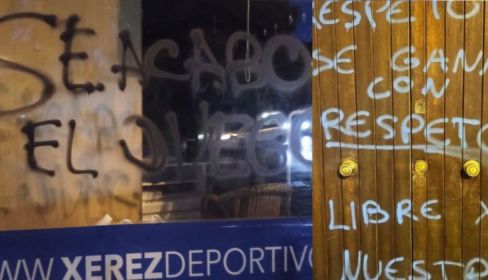 SE ACABO
EL JUEGO
WW.XEREZDEPORTIVO
RESPETO
SE GANA
CON
RESPETO
LIBRE X
NUESTO